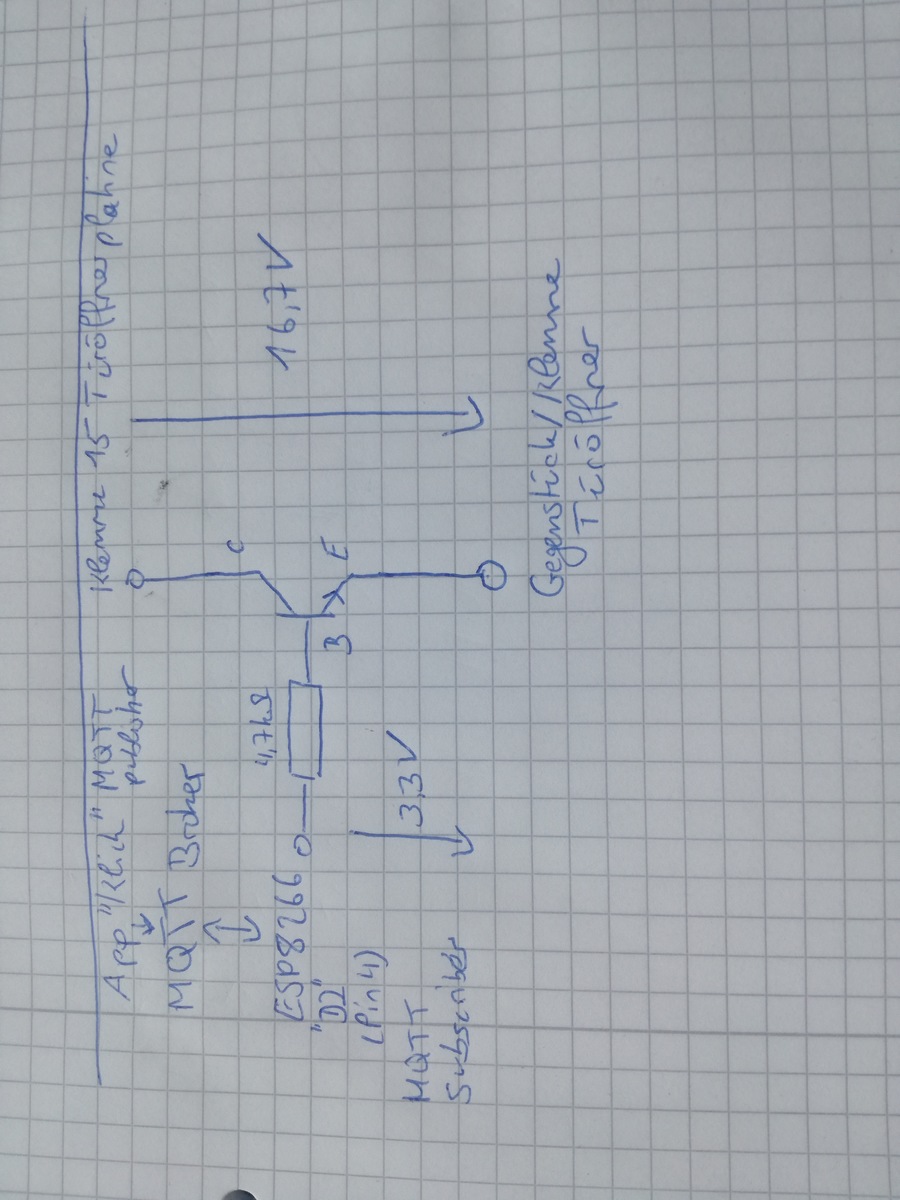 App "Klick" MQTT
publisher
MQTT Broker
ESP8266
"D2"
(Pin 4)
MQTT
Subscriber
3,3V
4,7kΩ
B
C
E
Klemme 15 Türöffnerplatine
16,7V
Gegenstück/Klemme
Türöffner